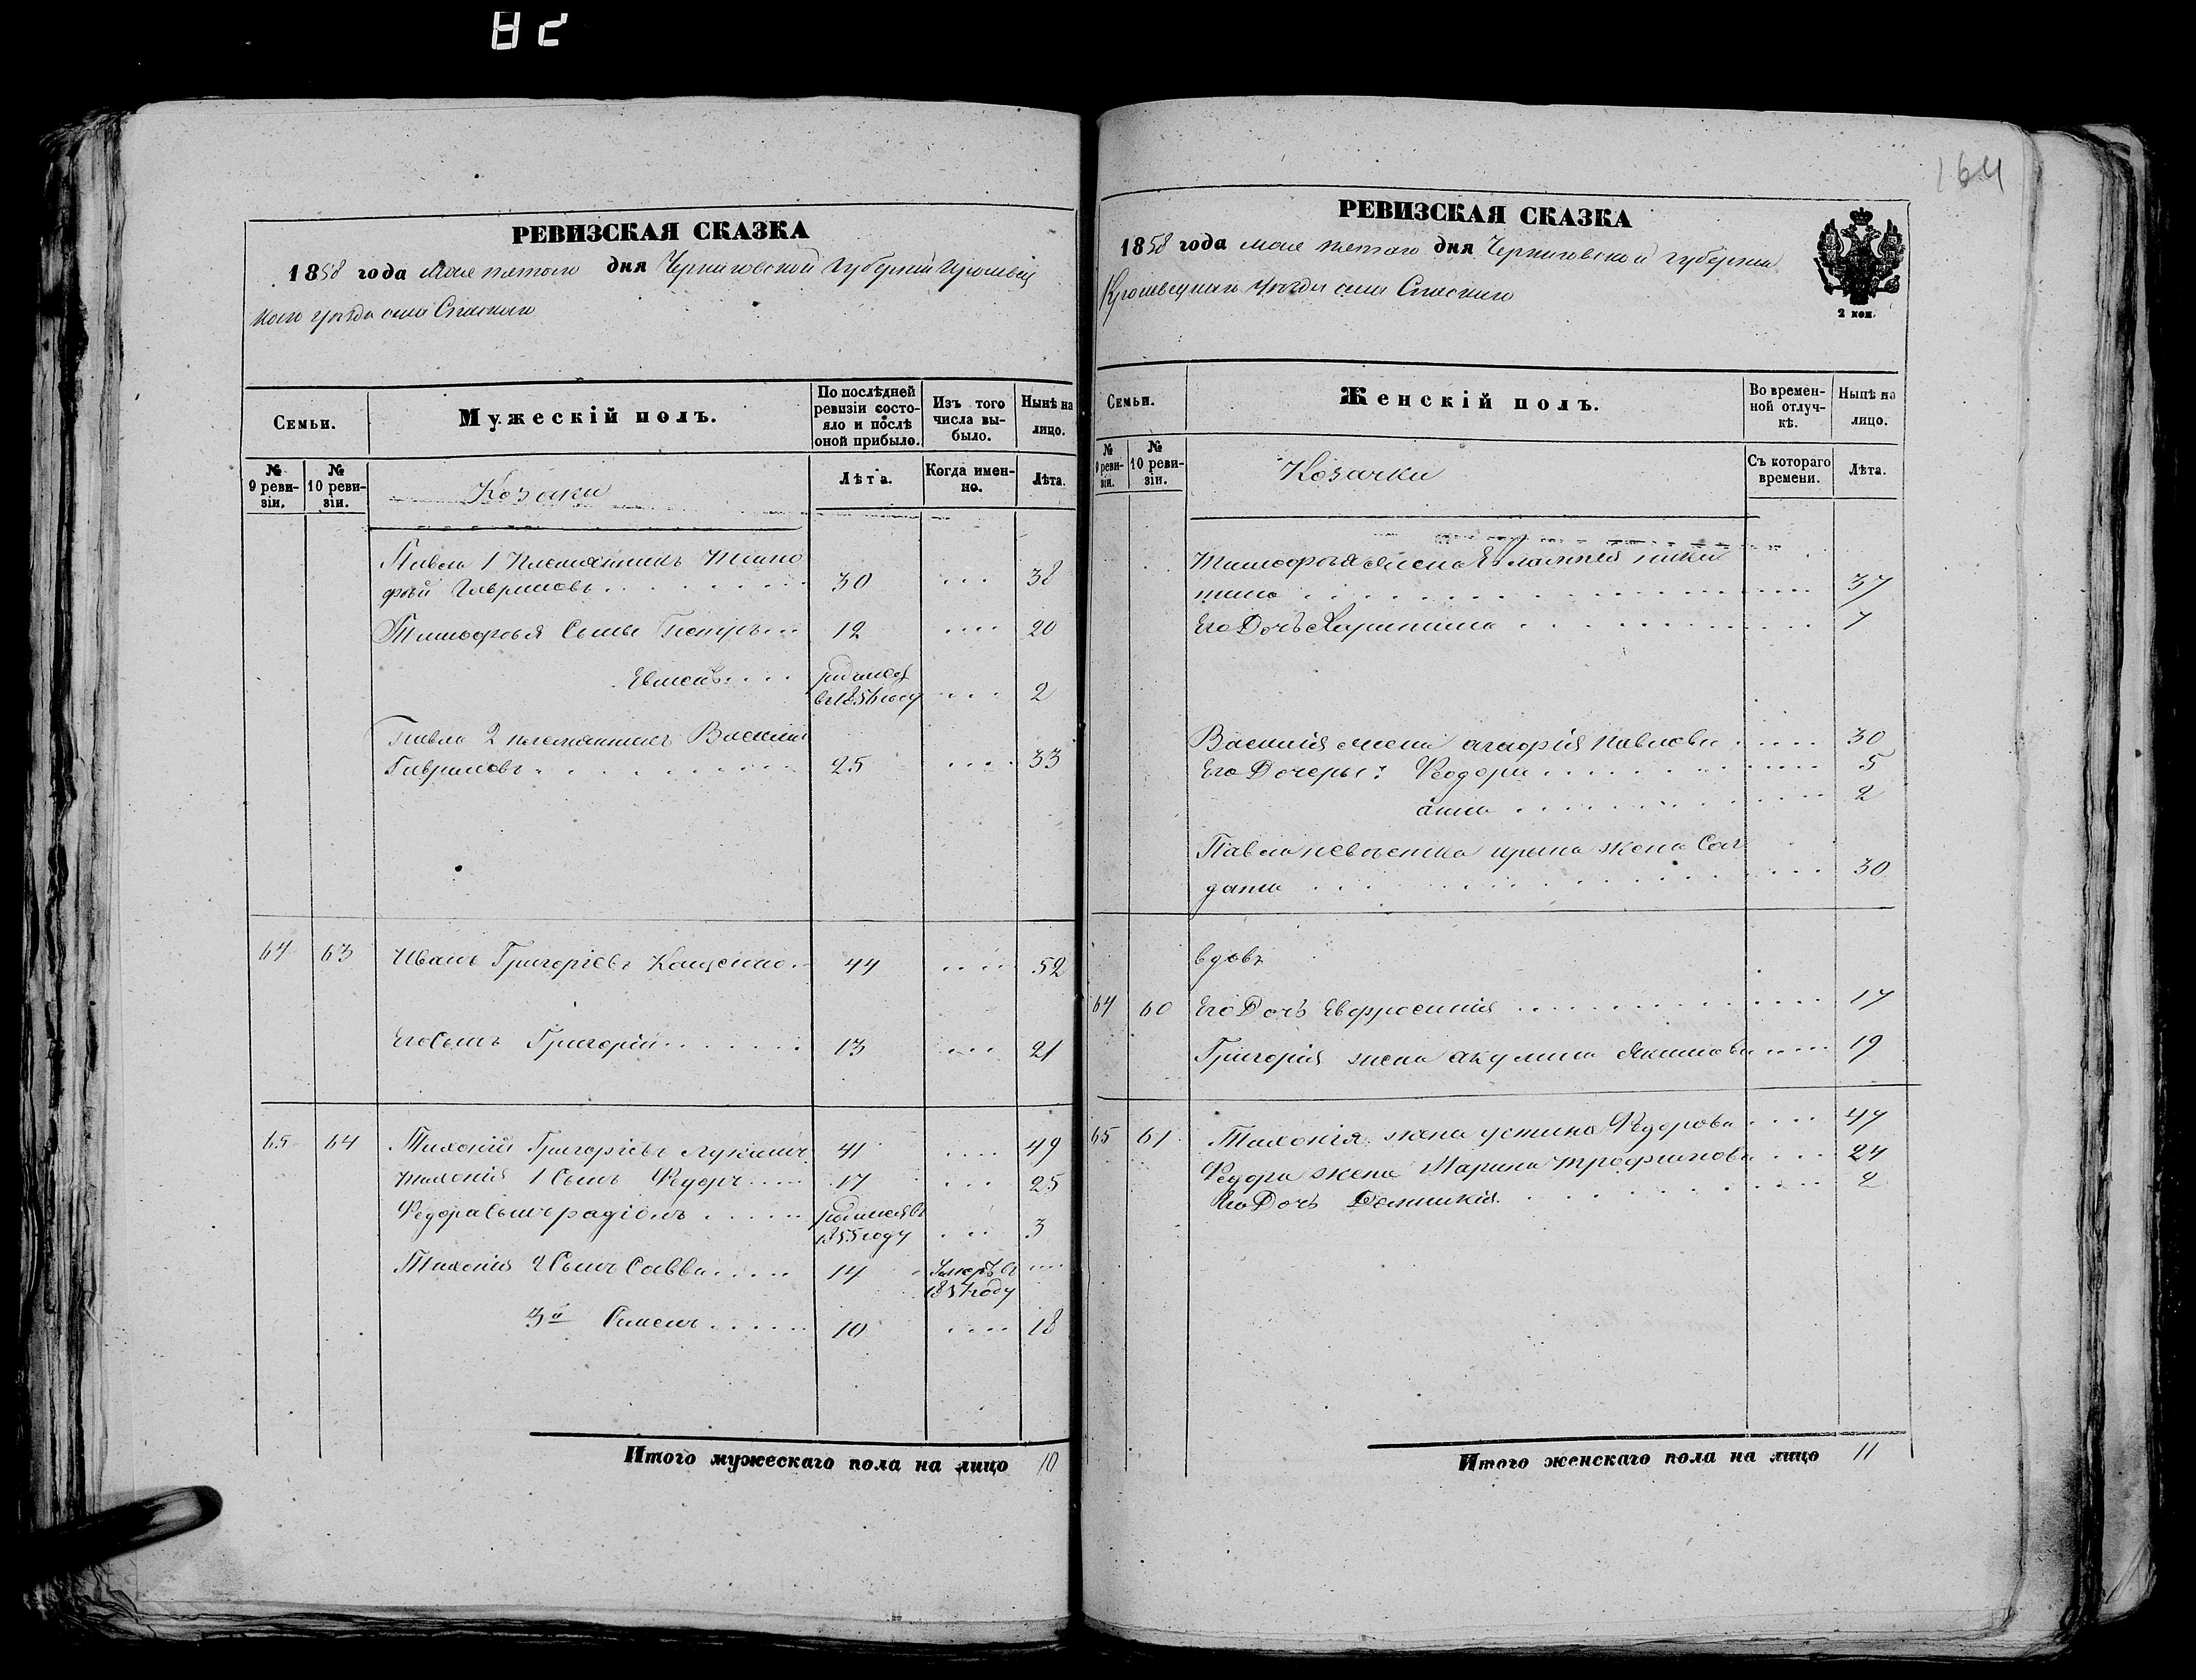 164
РЕВИЗСКАЯ СКАЗКА
1858 года мая пятого дня Черниговской губернии Кролевец
кого уезда села Спаского
Семьи.
Мужескій полъ.
По послѣдней ревизіи состояло и послѣ оной прибыло.
Изъ того числа выбыло.
Нынѣ на лицо.
№ 9 ревизіи.
№ 10 ревизіи.
Козаки
Лѣта.
Когда именно.
Лѣта.
Павла 1 Племянникъ Тимо
фѣй Гавриловъ 30 38
Тимофѣя Сыны Петръ 12 20
Евменъ родился
в 1856 году 2
Павла 2 племянникъ Василий
Гавриловъ 25 33
64 63 Иванъ Григорiевъ Кащенко 44 52
Его Сынъ Григорий 13 21
65 64 Тихоній Григоріевъ 41 49
Тихонія 1 Сынъ Федоръ 17 25
Федора Сынъ радіонъ родился въ
1855 году 3
Тихонія 2 Сынъ Савва 14 Умеръ въ
185 году
3й Симонъ 10 18
Итого мужескаго пола на лицо 10
РЕВИЗСКАЯ СКАЗКА
1858 года мая пятого дня Черниговской губернии
Кролевецкаго уезда села Спаского
2 коп.
Семьи.
Женскій полъ.
Во временной отлучкѣ.
Нынѣ на лицо.
№ 9 ревизіи.
№ 10 ревизіи.
Козачки
Съ котораго времени.
Лѣта.
Тимофѣя жена
37
Его Дочь Харитина 7
Василія жена агафія павлова 30
Его Дочеры: Феодора 5
анна 2
Павла невѣстка ирина жена Сол
дата 30
вдовъ
64 60 Его Дочь Евфросинія 17
Григорія жена акулина Якимова 19
65 61 Тихонія жена устина Федорова 47
Федора жена Марина трофимова 24
Его Дочь Домникія 2
Итого женскаго пола на лицо 11